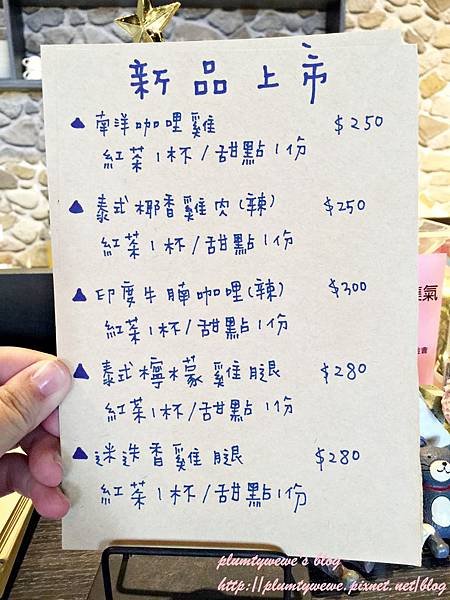 新品上市
▲ 南洋咖哩雞 $250
紅茶1杯/甜點1份
▲ 泰式椰香雞肉(辣) $250
紅茶1杯/甜點1份
▲ 印度牛腩咖哩(辣) $300
紅茶1杯/甜點1份
▲ 泰式檸檬雞腿 $280
紅茶1杯/甜點1份
▲ 迷迭香雞腿 $280
紅茶1杯/甜點1份
氣
plumtywewe's blog
http://plumtywewe.pixnet.net/blog